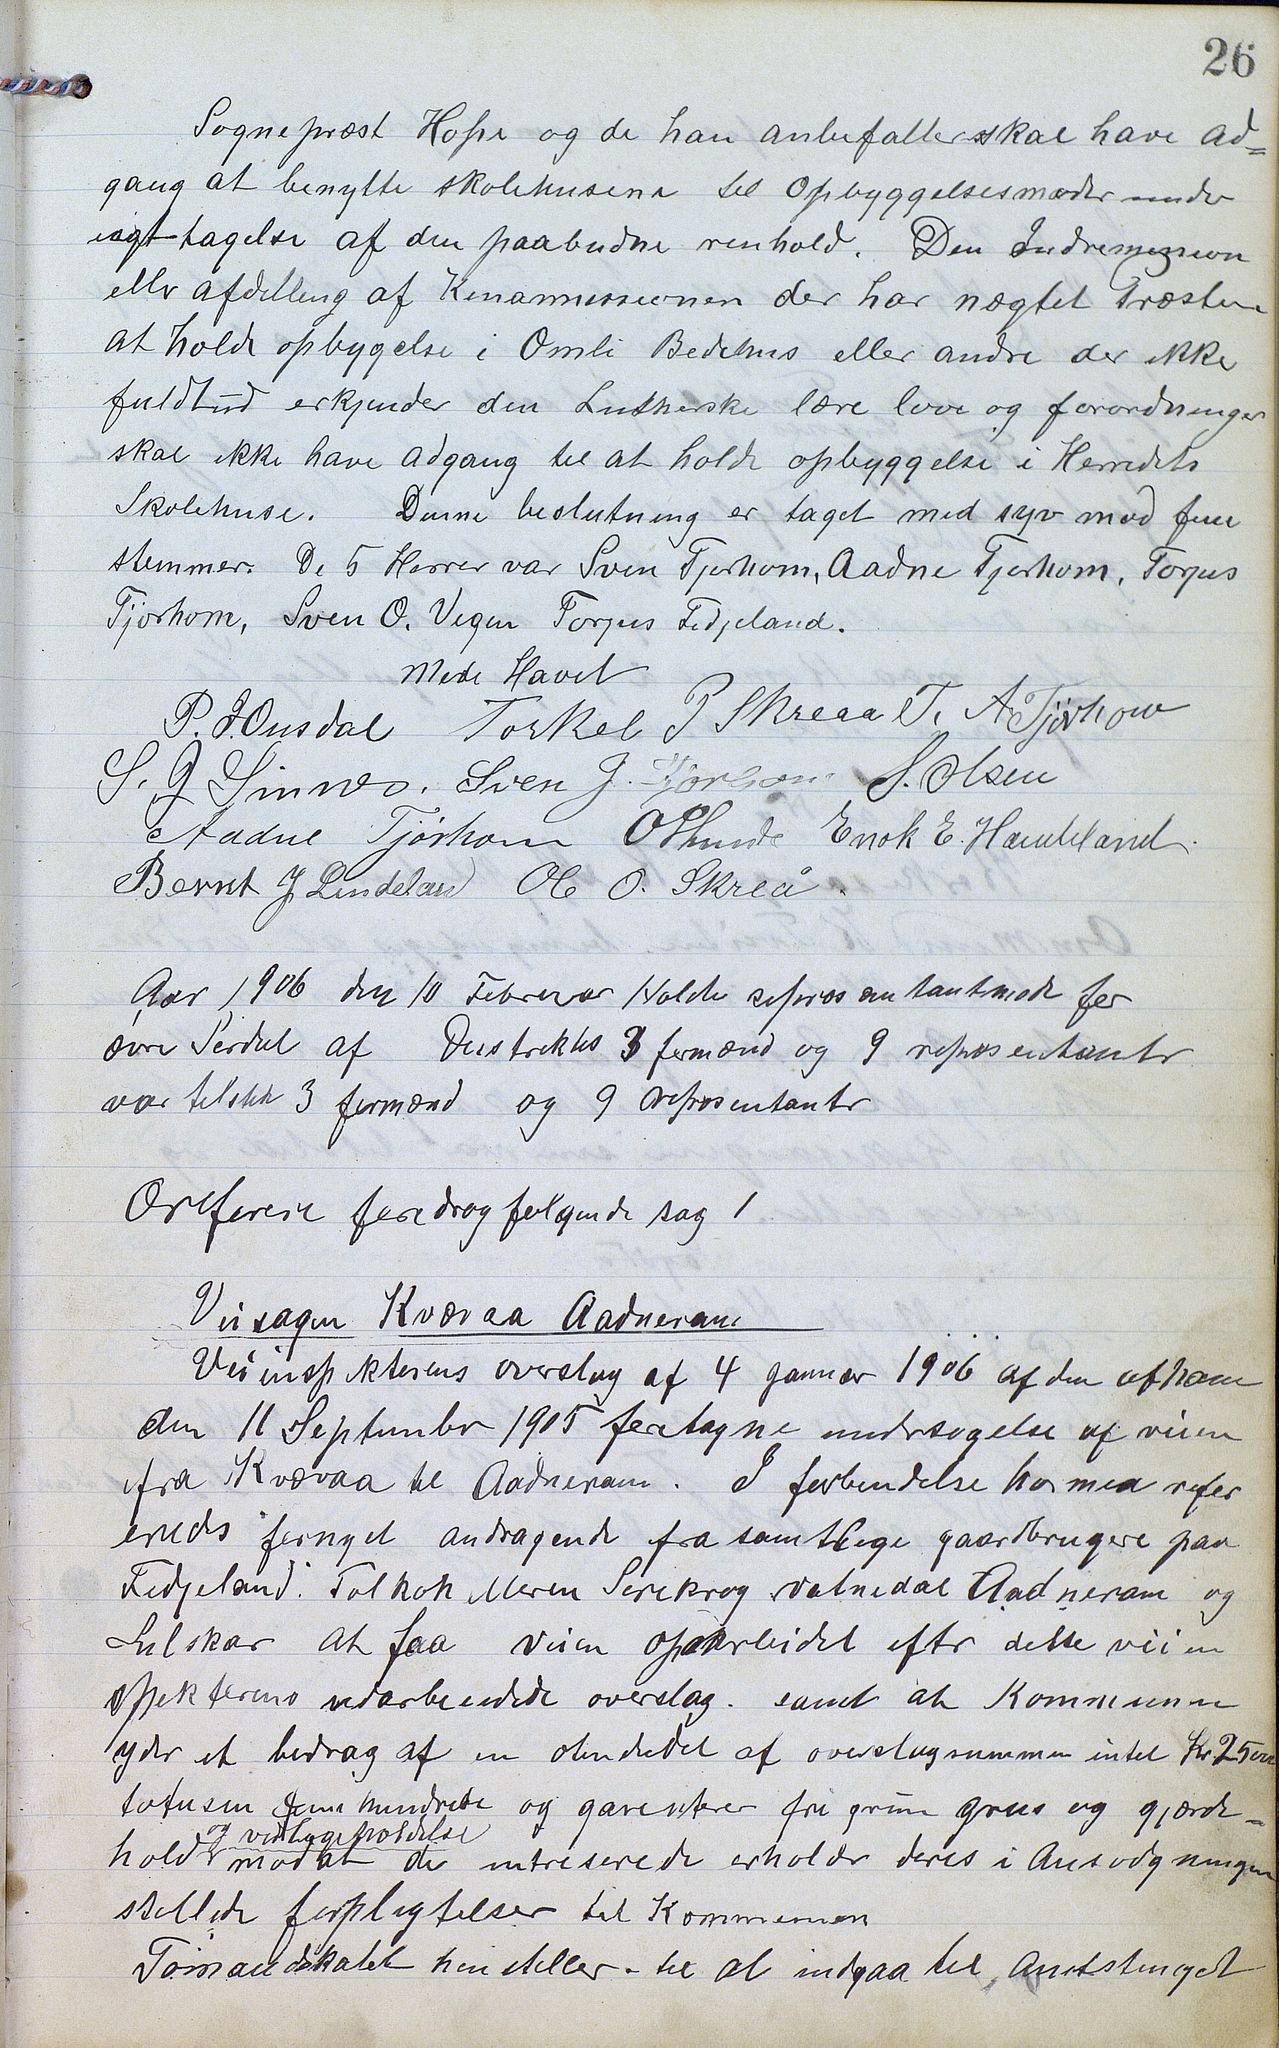 26
Sognepræst Hope og de han anbefaller skal have ad=
gang at benytte skolehusene til Opbyggelsesmøder under
iagttagelse af den paabudne renhold. Den Indremission
eller afdelling af Kinamissionen der har nægtet Præsten
at holde opbygelse i Omli Bedehus eller andre der ikke
fuldtud erkjender den Lutherske lære love og forordninger
skal ikke have adgang til at holde opbyggelse i Herredets
Skolehuse. Denne beslutning er taget med syv mod fem
stemmer. De 5 Herrer var Sven Tjorhom, Aadne Tjorhom, Torjus
Tjörhom, Sven O. Vegen Torjus Fidjeland.
Møde Hævet
P. J. Ousdal Torkel P Skreaa T. A Tjörhom
S. J Sinnes. Sven J. Tjorhom S. Olsen
Aadne Tjörhom O Thunde Enok E. Haudeland.
Bernt J Lindeland Ole O. Skreå.
Aar 1906 den 10 Februar Holdtes representantmøde for
øvre Sirdal af Distriktets 3 formænd og 9 representanter
var tilsted 3 formænd og 9 representanter
Ordføreren foredrog følgende sag 1
Veisagen Kvævaa Aadneram
Veiinspektørens overslag af 4 januar 1906 af den af ham
den 11 September 1905 foretagne undersøgelse af veien
fra Kvævaa til Aadneram. I forbindelse hermed refer
eredes fornyet andragende fra samtlige gaardbrugere paa
Fidjeland. Tolhok Meren Serekrog Vatnedal Aadneram og
Lilskar at faa veien oparbeidet efter dette veiin
spektørens udarbeidede overslag. samt at Kommunen
yder et bedrag af en av overslagsummen indtil Kr. 2500
totusen fem hundrede og garenterer fri grun grus og gjærde=
og vedligeholdelse
hold modat de intreserede erholder deres i Ansøgningen
stillede forpligtelser til Kommunen
Formandskabet henstiller til at indgaa til Amtstinget